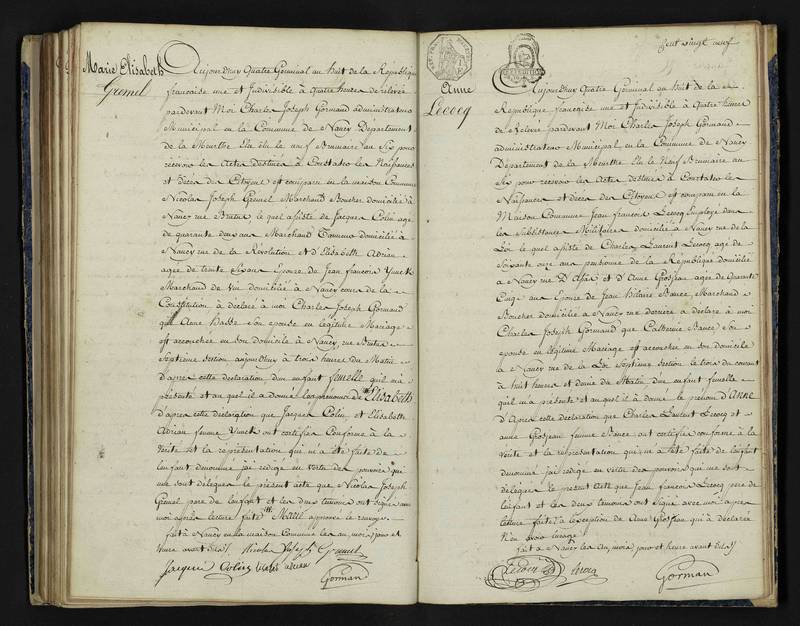 Marie Elisabeth
Gremel
Aujourd'huy Quatre Germinal an huit de la Republique
francaise une et Indivisible à quatre heures de relevée
pardevant Moi Charles Joseph Gormand administrateur
Municipal en la Commune de Nancy Département
de la Meurthe Elu le neuf Brumaire an Six pour
recevoir les Actes destinés à Constater les Naissances
et décès des Citoyens est comparu en la maison Commune
Nicolas Joseph Gremel Marchand Boucher domicilié à
Nancy rue Brutus lequel assisté de Jacques Colin agé
de quarante deux ans Marchand Tanneur domicilié à
Nancy rue de la Révolution et d'Elisabeth Adrian
agée de trente six ans Epouse de Jean francois
Marchand de Vin domicilié à Nancy cour de la
Constitution à déclaré à moi Charles Joseph Gormand
que Anne son epouse en légitime Mariage
est accouchée en son domicile à Nancy, rue Brutus
Septieme Section aujourd'huy à trois heures du Matin
d'après cette déclaration d'un enfant femelle qu'il m'a
présenté et auquel il a donné les prénoms de Elisabeth
d'après cette déclaration que Jacques Colin et Elisabeth
Adrian femme ont certifiée Conforme à la
Vérité et la représentation qui m'a été faite de
l'enfant denommé j'ai redigé en vertu des pouvoirs qui
me sont délégués le présent acte que Nicolas Joseph
Gremel pere de l'enfant et les deux temoins ont signé avec
moi après lecture faite Marie approuvé le renvoy
fait à Nancy en la maison Commune les an, mois, jour et
heure avant dits
Nicolas Joseph Gremel
Jacques Colin elisabet adrian
Gorman
Cent vingt neuf
Anne
Lecocq
Aujourd'huy Quatre Germinal an huit de la
Republique francaise une et Indivisible à quatre heures
de relevée pardevant Moi Charles Joseph Gormand
administrateur Municipal en la Commune de Nancy
Département de la Meurthe Elu le Neuf Brumaire an
Six pour recevoir les Actes destinés à Constater les
Naissances et décès des Citoyens est comparu en la
Maison Commune Jean francois Lecocq Employé dans
les Subsistances Militaires domicilié à Nancy rue de la
Loi lequel assisté de Charles Laurent Lecocq agé de
Soixante onze ans pensionné de la République domicilié
à Nancy rue et d'Anne Grosjean agée de Quarante
Cinq ans Epouse de Jean Hilaire Bance Marchand
Boucher domicilié à Nancy rue derriere à déclaré à moi
Charles Joseph Gormand que Catherine Bance son
epouse en légitime Mariage est accouchée en son domicile
à Nancy rue de la Loi Septieme Section le trois du courant
à huit heures et demie du Matin d'un enfant femelle
qu'il m'a présenté et auquel il a donné le prénom d'ANNE
d'Après cette déclaration que Charles Laurent Lecocq et
anne Grosjean femme Bance ont certifiée conforme à la
Vérité et la représentation qui m'a été faite de l'enfant
denommé j'ai redigé en vertu des pouvoirs qui me sont
délégués le present Acte que Jean francois Lecocq pere de
l'Enfant et les deux temoins ont signé avec moi après
lecture faite à l'exception de Anne Grosjean qui à déclarée
N'en avoir l'usage
fait à Nancy les an, mois, jour et heure avant dits
Lecocq
Gorman